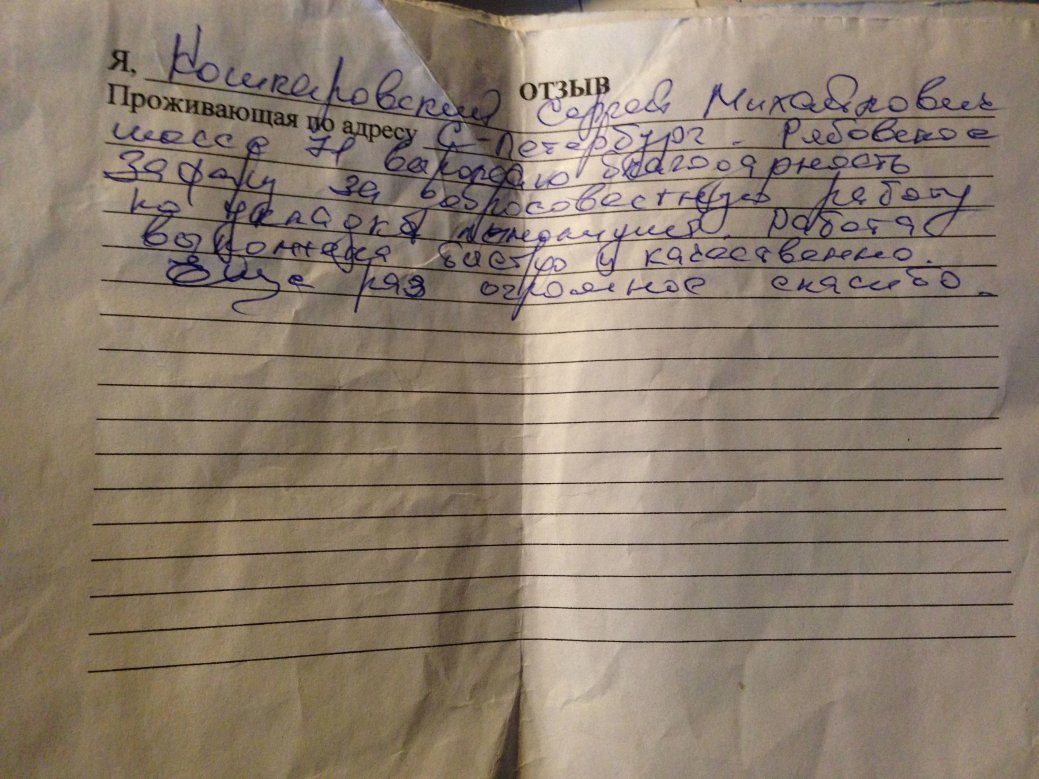 ОТЗЫВ
Я, Кошкаровский Сергей Михайлович
Проживающая по адресу С-Петербург. Рябовское
шоссе выражаю благодарность
за добросовестную работу
по укладке Работа
выполнена быстро и качественно.
Еще раз огромное спасибо.